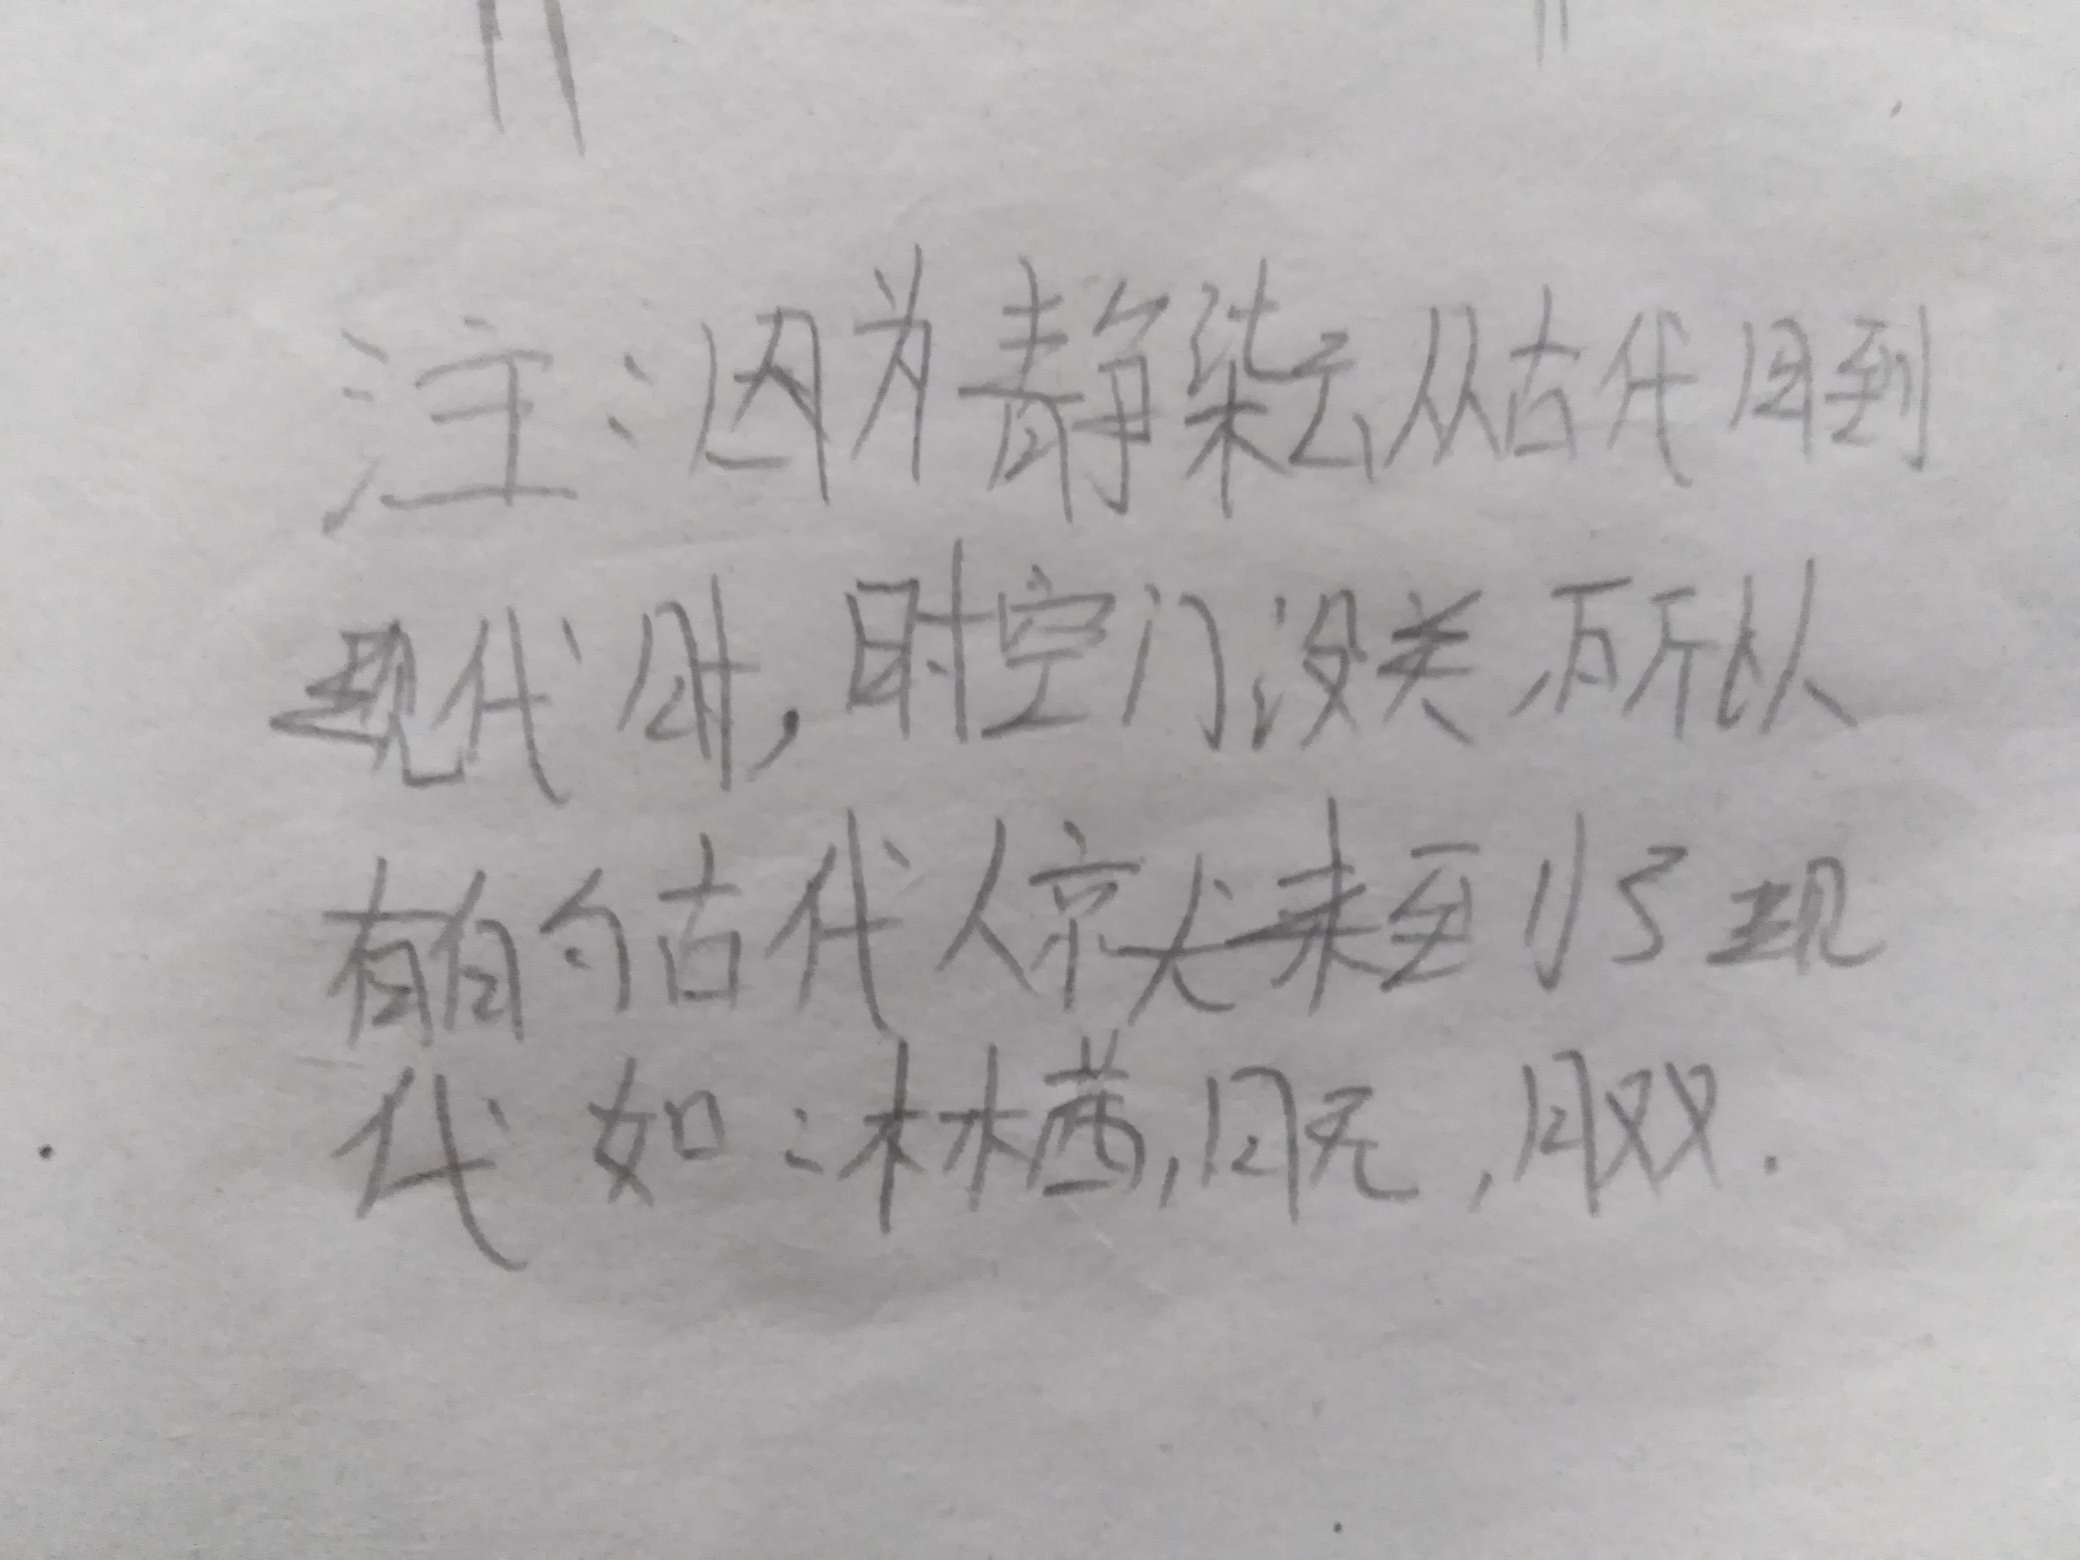 注：因为静染云从古代回到
现代时，时空门没关，所以
有的古代人就来到了现
代 如：林茜，月无，月双．